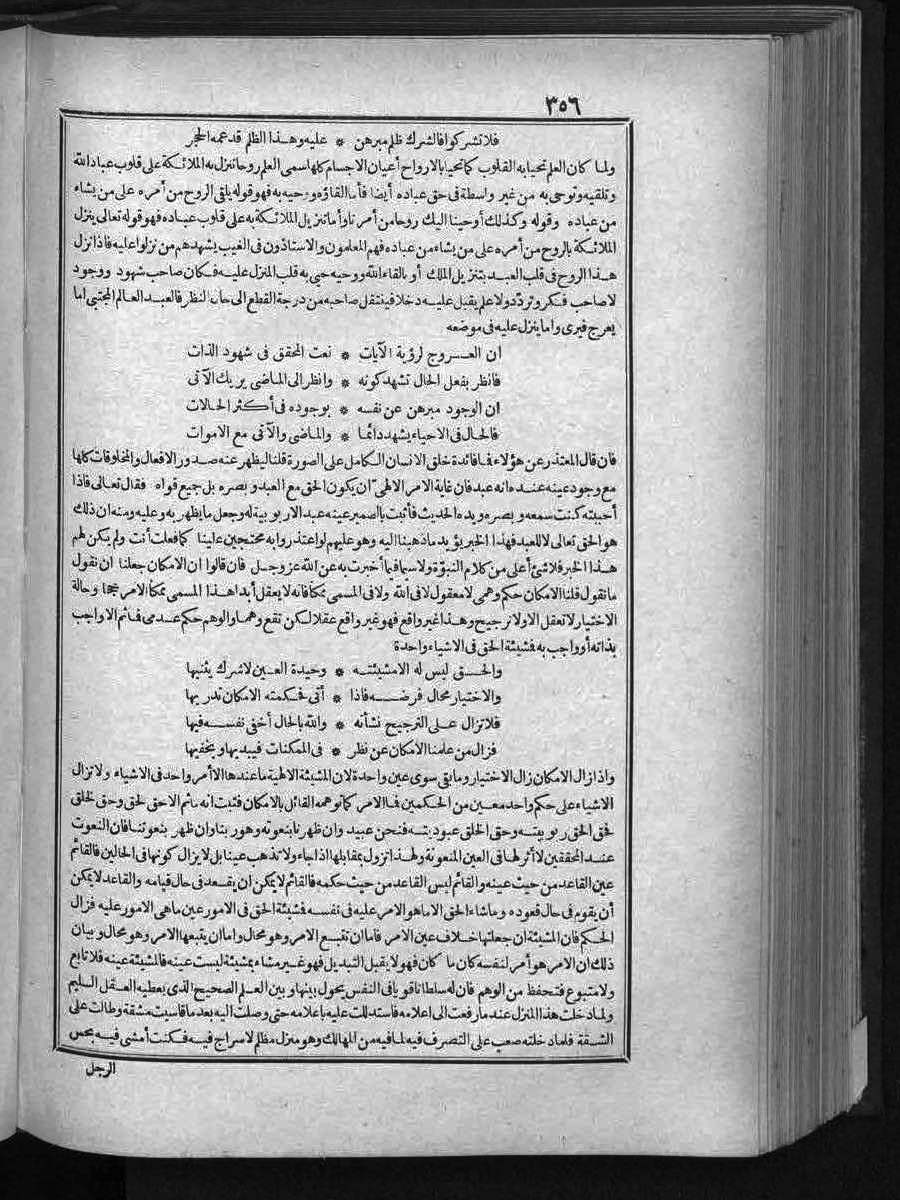 ٣٥٦
فلا تشركوا فالشرك ظلم مبرهن * عليه وهذا الظلم قد عمه الحجر
ولما كان العلم تحيا به القلوب كما تحيا بالارواح أعيان الاجسام كلها سمى العلم روحا تنزل به الملائكة على قلوب عباد الله
وتلقيه وتوحى به من غير واسطة فى حق عباده أيضا فأما القاؤه ووحيه به فهو قوله يلقى الروح من أمره على من يشاء
من عباده وقوله وكذلك أوحينا اليك روحا من أمرنا وأما تنزيل الملائكة به على قلوب عباده فهو قوله تعالى ينزل
الملائكة بالروح من أمره على من يشاء من عباده فهم المعلمون والاستاذون فى الغيب يشهدهم من نزلوا عليه فاذا نزل
هذا الروح فى قلب العبد بتنزيل الملك أو بالقاء الله ووحيه حيى به قلب المنزل عليه فكان صاحب شهود ووجود
لا صاحب فكر وتردّد ولا علم يقبل عليه دخلا فينتقل صاحبه من درجة القطع الى حال النظر فالعبد العالم المجتبى اما
يعرج فيرى واما ينزل عليه فى موضعه
ان العروج لرؤية الآيات * نعت المحقق فى شهود الذات
فانظر بفعل الحال تشهد كونه * وانظر الى الماضى يريك الآتى
ان الوجود مبرهن عن نفسه * بوجوده فى أكثر الحالات
فالحال فى الاحياء يشهد دائما * والماضى والآتى مع الاموات
فان قال المعتذر عن هؤلاء فما فائدة خلق الانسان الكامل على الصورة قلنا ليظهر عنه صدور الافعال والمخلوقات كلها
مع وجود عينه عنده انه عبد فان غاية الامر الالهىّ أن يكون الحق مع العبد وبصره بل جميع قواه فقال تعالى فاذا
أحببته كنت سمعه وبصره ويده الحديث فأثبت بالضمير عينه عبدا لا ربوبية له وجعل ما يظهر به وعليه ومنه ان ذلك
هو الحق تعالى لا للعبد فهذا الخبر يؤيد ما ذهبنا اليه وهو عليهم لو اعتذروا به محتجين علينا كما فعلت أنت ولم يكن لهم
هذا الخبر فلا شئ أعلى من كلام النبوّة ولا سيما فيما أخبرت به عن الله عز وجل فان قالوا ان الامكان جعلنا ان نقول
ما تقول قلنا الامكان حكم وهمى لا معقول لا فى الله ولا فى المسمى ممكنا فانه لا يعقل أبدا هذا المسمى ممكنا الا مرجحا وحالة
الاختيار لا تعقل الا ولا ترجيح وهذا غير واقع فهو غير واقع عقلا لكن تقع وهما والوهم حكم عدمى فما ثم الا واجب
بذاته أو واجب به فشيئة الحق فى الاشياء واحدة
والحق ليس له الا مشيئته * وحيدة العين لا شرك يثنيها
والاختيار محال فرضه فاذا * أتى فحكمته الامكان تدريها
فلا تزال على الترجيح نشأته * والله بالحال أخفى نفسه فيها
فزال من علمنا الامكان عن نظر * فى الممكنات فيبديها ويخفيها
واذا زال الامكان زال الاختيار وما بقى سوى عين واحدة لان المشيئة الالهية ما عندها الا أمر واحد فى الاشياء ولا تزال
الاشياء على حكم واحد معين من الحكمين فما الامر كما توهمه القائل بالامكان فثبت انه ما ثم الا حق لحق وحق لخلق
فحق الحق ربوبيته وحق الخلق عبوديته فنحن عبيد وان ظهرنا بنعوته وهو ربنا وان ظهر بنعوتنا فان النعوت
عند المحققين لا أثر لها فى العين المنعوتة ولهذا تزول بمقابلها اذا جاء ولا تذهب عينا بل لا يزال كونها فى الحالين فالقائم
عين القاعد من حيث عينه والقائم ليس القاعد من حيث حكمه فالقائم لا يمكن ان يقعد فى حال قيامه والقاعد لا يمكن
أن يقوم فى حال قعوده وما شاء الحق الا ما هو الامر عليه فى نفسه فشيئة الحق فى الامور عين ما هى الامور عليه فزال
الحكم فان المشيئة ان جعلتها خلاف عين الامر فاما ان تتبع الامر وهو محال واما ان يتبعها الامر وهو محال وبيان
ذلك ان الامر هو أمر لنفسه كان ما كان فهو لا يقبل التبديل فهو غير مشاء بمشيئة ليست عينه فالمشيئة عينه فلا تابع
ولا متبوع فتحفظ من الوهم فان له سلطانا قويا فى النفس يحول بينها وبين العلم الصحيح الذى يعطيه العقل السليم
ولما دخلت هذا المنزل عند ما رفعت الى اعلامه فاستدللت عليه باعلامه حتى وصلت اليه بعد ما قاسيت مشقة وطالت على
الشقة فلما دخلته صعب على التصرف فيه لما فيه من المهالك وهو منزل مظلم لا سراج فيه فكنت أمشى فيه بحس
الرجل